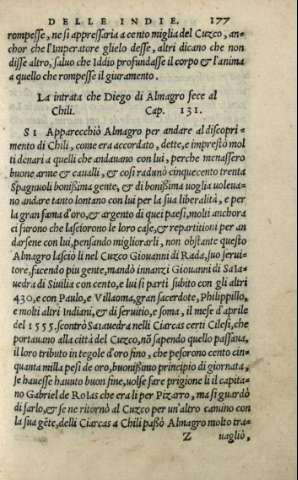 DELLE INDIE. 177
rompesse, ne si appressaria a cento miglia del Cuzco, an-
chor che l'Imperatore glielo desse, altri dicano che non
disse altro, saluo che Iddio profundasse il corpo & l'anima
a quello che rompesse il giuramento.
La intrata che Diego di Almagro fece al
Chili. Cap. 131.
SI Apparecchiò Almagro per andare al discopri-
mento di Chili, come era accordato, dette, e imprestò mol
ti denari a quelli che andauano con lui, perche menassero
buone arme & caualli, & così radunò cinquecento trenta
Spagnuoli bonissima gente, & di bonissima uoglia uoleua-
no andare tanto lontano con lui per la sua liberalità, e per
la gran fama d'oro, & argento di quei paesi, molti anchora
ci furono che lasciorono le loro case, & repartitioni per an
darsene con lui, pensando migliorarli, non obstante questo
Almagro lasciò lì nel Cuzco Giouanni di Rada, suo serui-
tore, facendo piu gente, mandò innanzi Giouanni di Saia-
uedra di Siuilia con cento, e lui si partì subito con gli altri
430, e con Paulo, e Villaoma, gran sacerdote, Philippillo,
e molti altri Indiani, & di seruitio, e soma, il mese d'aprile
del 1555, scontrò Saiauedra nelli Ciarcas certi Cilesi, che
portauano alla città del Cuzco, nõ sapendo quello passaua,
il loro tributo in tegole d'oro fino, che pesorono cento cin-
quanta mila pesi de oro, buonissimo principio di giornata,
se hauesse hauuto buon fine, uolse fare prigione lì il capita-
no Gabriel de Roias che era lì per Pizarro, ma si guardò
di farlo, & se ne ritornò al Cuzco per un'altro camino con
la sua gẽte, delli Ciarcas a Chili passò Almagro molto tra-
Z uagliò,